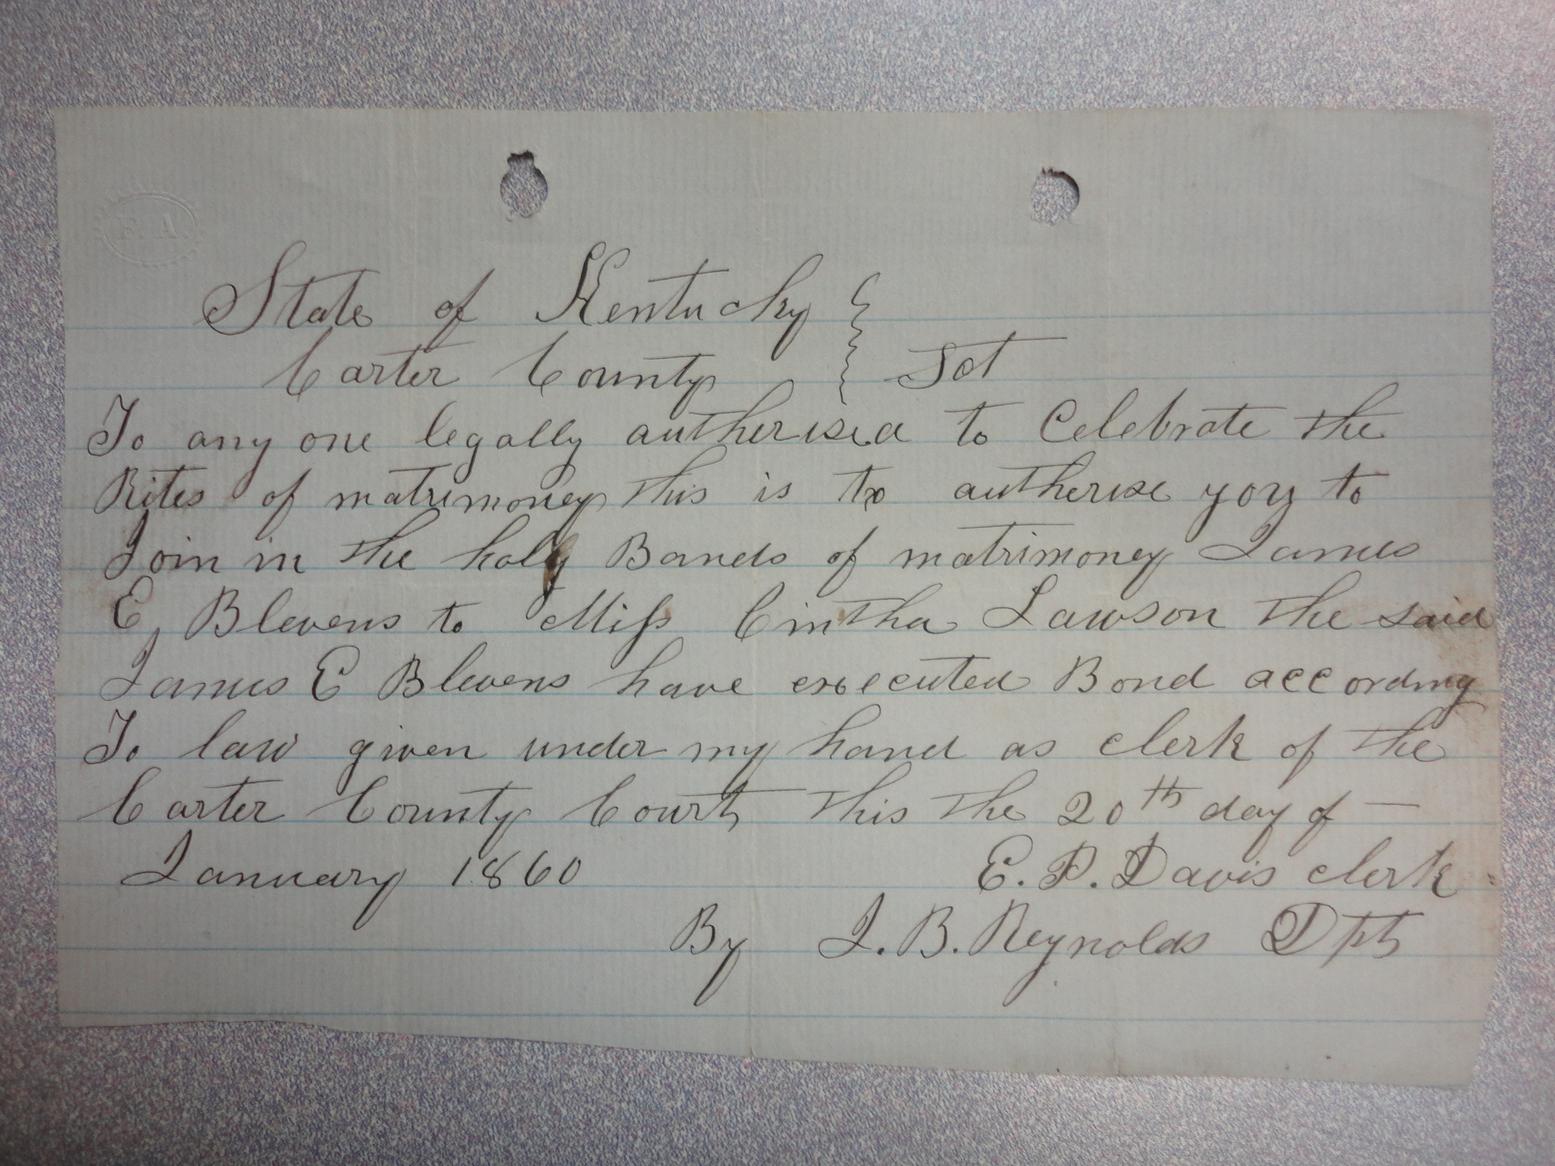 F. A.
State of Kentucky }
Carter County } Sct
To any one legally autherised to Celebrate the
Rites of matrimoney this is to autherise you to
Join in the holy Bands of matrimoney James
E Blevens to Miss Cintha Lawson the said
James E Blevens have executed Bond according
To law given under my hand as clerk of the
Carter County Court this the 20th day of —
January 1860 E. P. Davis clerk
By J. B. Reynolds Dpt